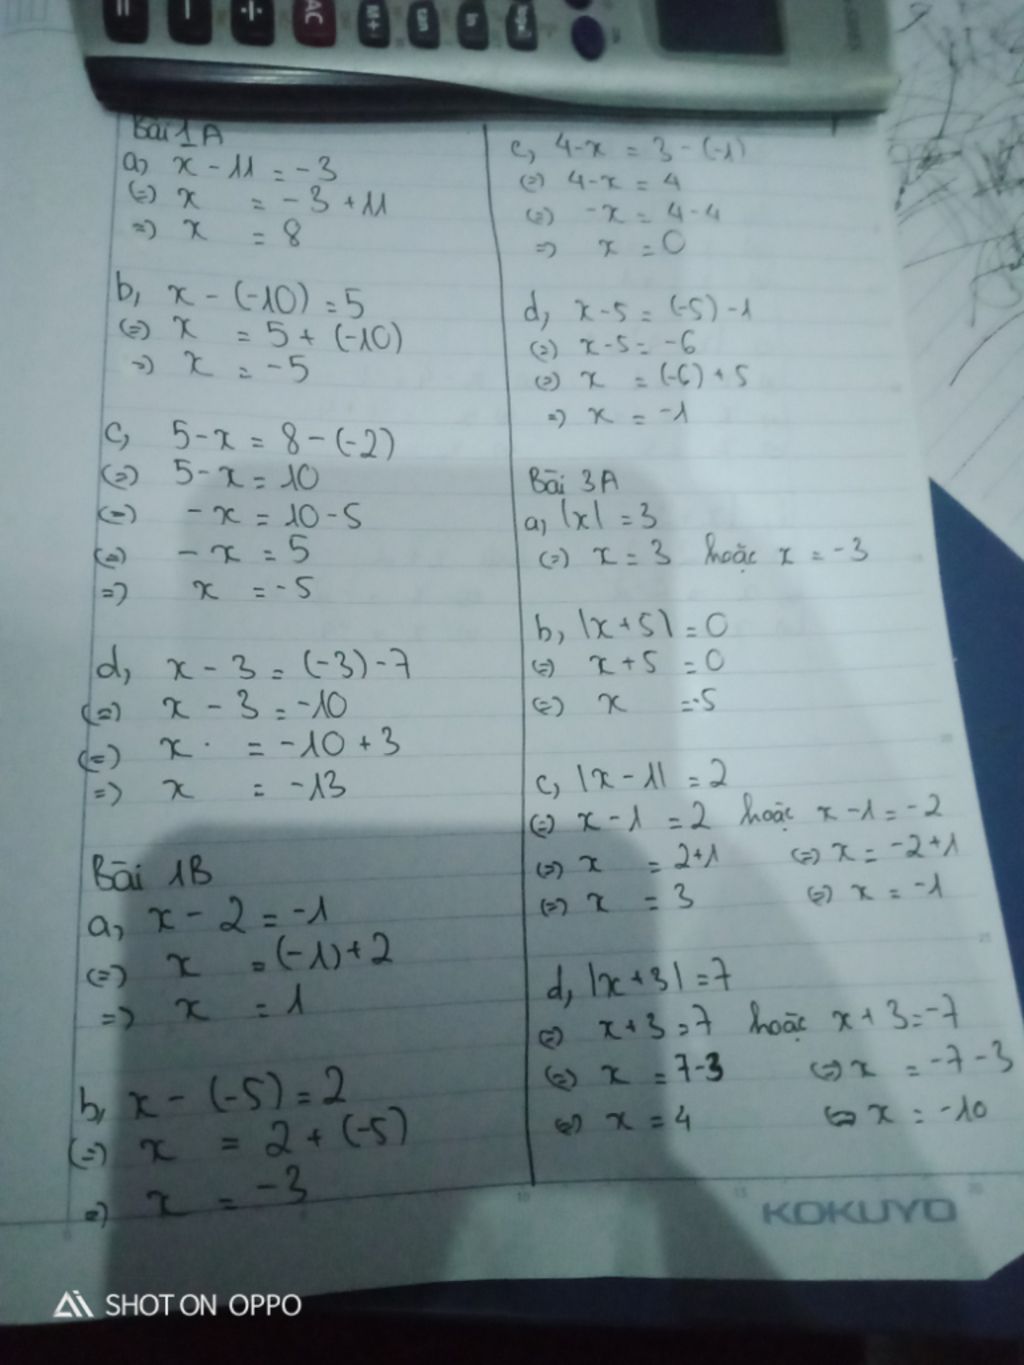 Bài 1A
a, x - 11 = -3
(=) x = -3 + 11
=) x = 8
b, x - (-10) = 5
(=) x = 5 + (-10)
=) x = -5
c, 5 - x = 8 - (-2)
(=) 5 - x = 10
(=) - x = 10 - 5
(=) - x = 5
=) x = -5
d, x - 3 = (-3) - 7
(=) x - 3 = -10
(=) x = -10 + 3
=) x = -13
Bài 1B
a, x - 2 = -1
(=) x = (-1) + 2
=) x = 1
b, x - (-5) = 2
(=) x = 2 + (-5)
=) x = -3
c, 4-x = 3 - (-1)
(=) 4-x = 4
(=) -x = 4-4
=) x = 0
d, x-5 = (-5) -1
(=) x-5 = -6
(=) x = (-6) + 5
=) x = -1
Bài 3A
a, |x| = 3
(=) x = 3 hoặc x = -3
b, |x + 5| = 0
(=) x + 5 = 0
(=) x = -5
c, |x - 1| = 2
(=) x - 1 = 2 hoặc x - 1 = -2
(=) x = 2+1 (=) x = -2+1
(=) x = 3 (=) x = -1
d, |x + 3| = 7
(=) x + 3 = 7 hoặc x + 3 = -7
(=) x = 7-3 (=) x = -7 - 3
(=) x = 4 (=) x = -10
KOKUYO
SHOT ON OPPO